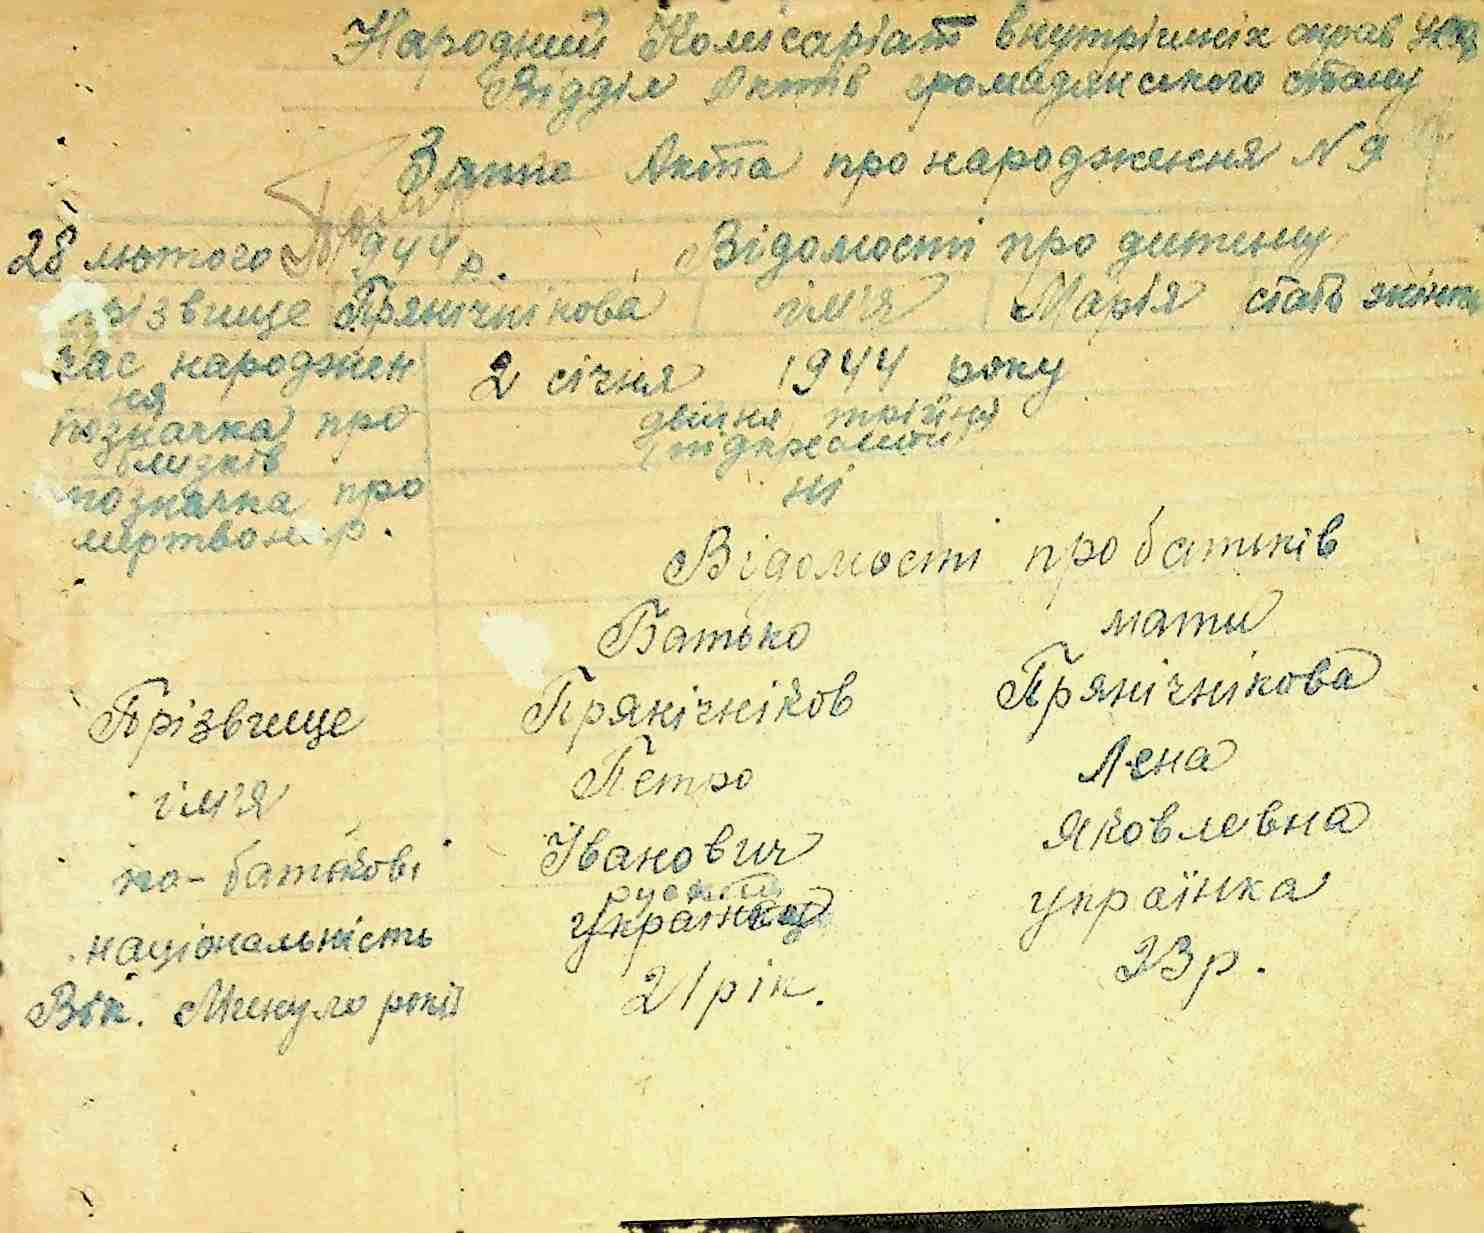 Народний Комісаріат внутрішніх справ
Відділ Актів громадянського стану
Запис Акта про народження N 9
28 лютого 1944 р. Відомості про дитину
прізвище Прянічнікова ім'я Марія стать жіноч
час народжен 2 січня 1944 року
ня
позначка про двійня трійня
близнів (підкреслити)
позначка про ні
мертвонар.
Відомості про батьків
Батько мати
Прізвище Прянічніков Прянічнікова
ім'я Петро Лєна
по-батькові Іванович Яковлевна
руский
національність українка
Вік. Минуло років 21 рік. 23 р.